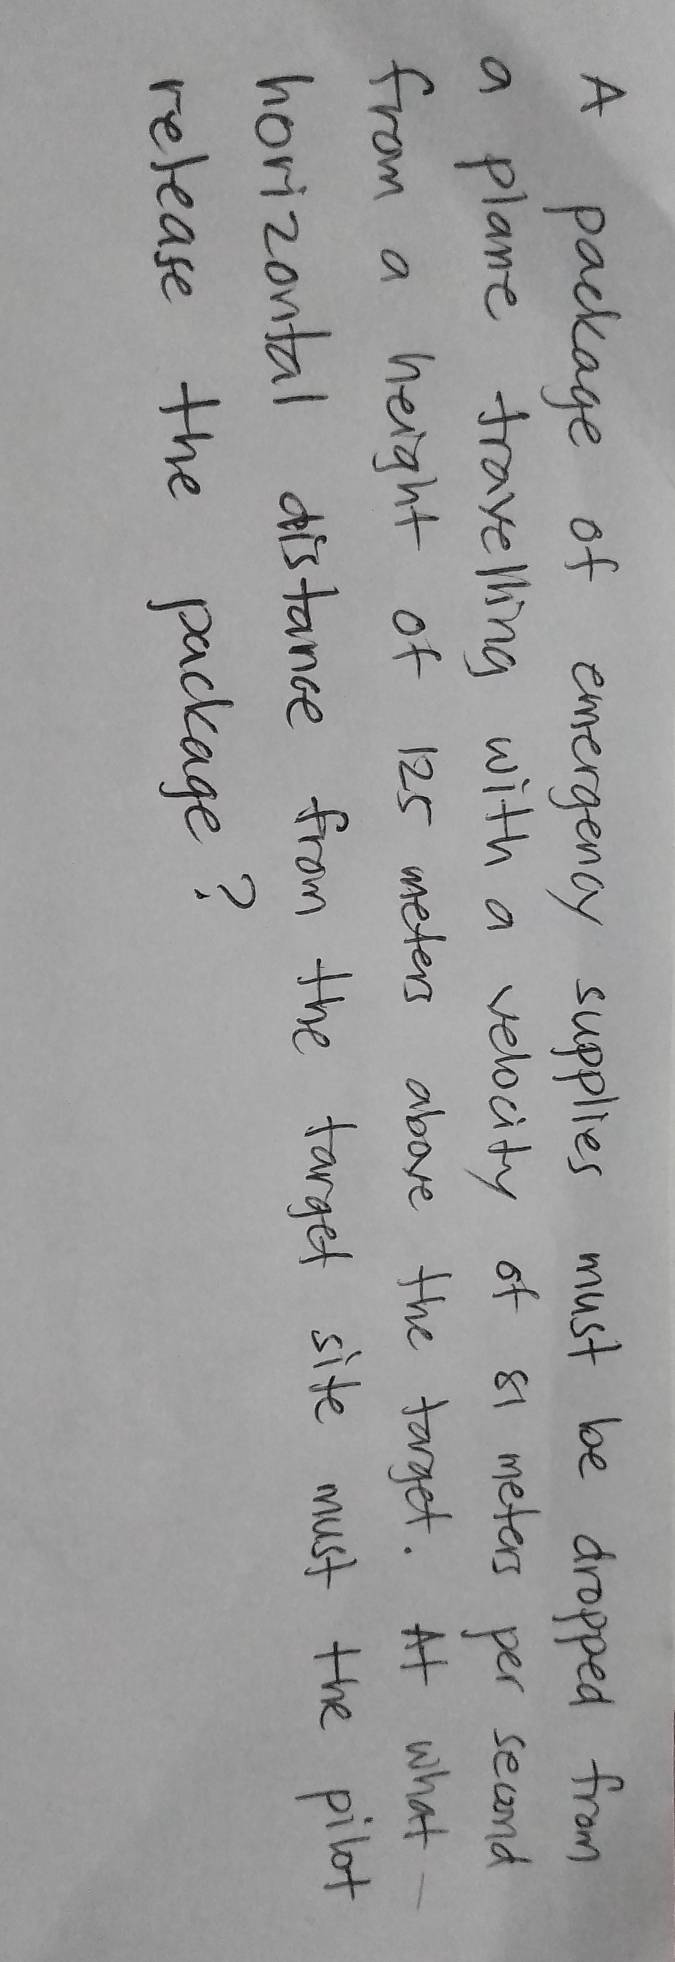 A package of emergency supplies must be dropped from
a plane travelling with a velocity of 81 meters per second
from a height of 125 meters above the target. At what
horizontal distance from the target site must the pilot
release the package?